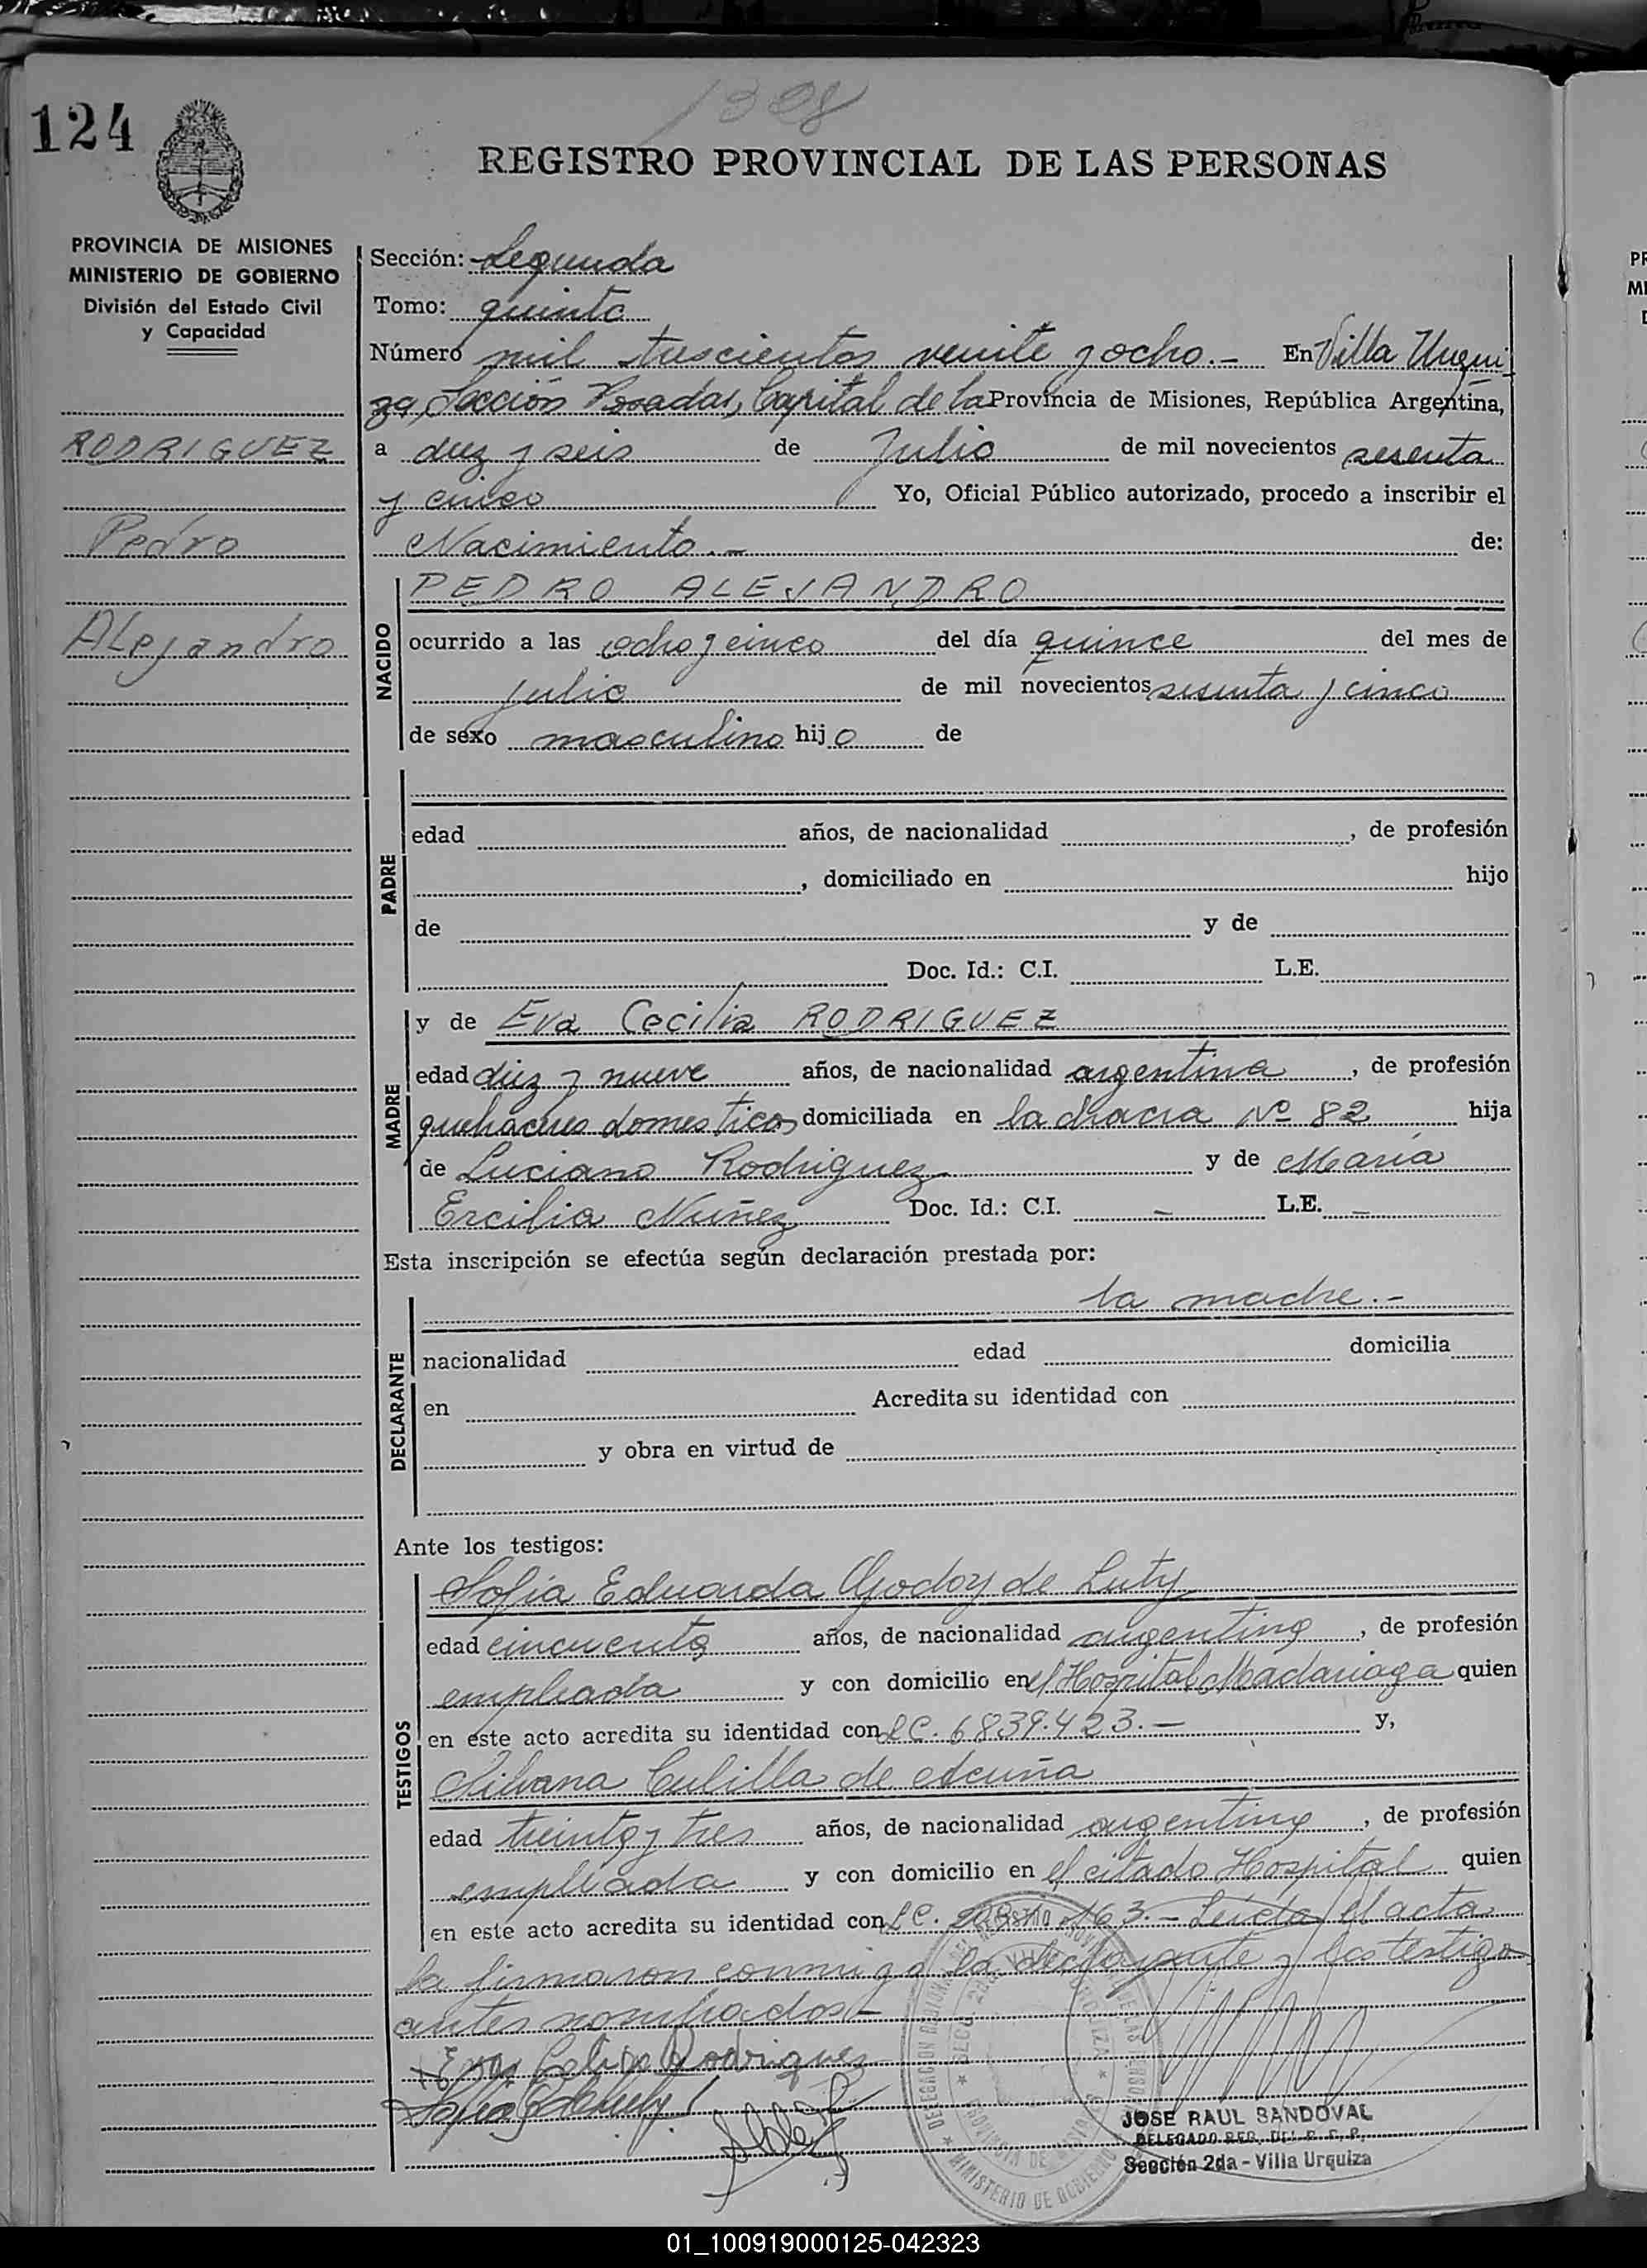 1328
124
REGISTRO PROVINCIAL DE LAS PERSONAS
PROVINCIA DE MISIONES
MINISTERIO DE GOBIERNO
División del Estado Civil
y Capacidad
RODRIGUEZ
Pedro
Alejandro
Sección: Segunda
Tomo: quinto
Número mil trescientos veinte y ocho.- En Villa Urqui-
za, Sección Posadas, Capital de la Provincia de Misiones, República Argentina,
a diez y seis de Julio de mil novecientos sesenta
y cinco Yo, Oficial Público autorizado, procedo a inscribir el
Nacimiento.- de:
NACIDO
PEDRO ALEJANDRO
ocurrido a las ocho y cinco del día quince del mes de
julio de mil novecientos sesenta y cinco
de sexo masculino hijo de
PADRE
edad años, de nacionalidad , de profesión
, domiciliado en hijo
de y de
Doc. Id.: C.I. L.E.
MADRE
y de Eva Cecilia RODRIGUEZ
edad diez y nueve años, de nacionalidad argentina, de profesión
quehaceres domesticos domiciliada en la chacra Nº 82 hija
de Luciano Rodriguez y de María
Ercilia Núñez Doc. Id.: C.I. - L.E. -
Esta inscripción se efectúa según declaración prestada por:
DECLARANTE
la madre.-
nacionalidad edad domicilia
en Acredita su identidad con
y obra en virtud de
Ante los testigos:
TESTIGOS
Sofia Eduarda Godoy de Luty
edad cincuenta años, de nacionalidad argentina, de profesión
empleada y con domicilio en el Hospital Madariaga quien
en este acto acredita su identidad con LC. 6839.423.- y,
Silvana Cubilla de Acuña
edad treinta y tres años, de nacionalidad argentina, de profesión
empleada y con domicilio en el citado Hospital quien
en este acto acredita su identidad con LC. 163.- Leída el acta
la firmaron conmigo la declarante y los testigos
antes nombrados-
Eva Celi Rodriguez
JOSE RAUL SANDOVAL
DELEGADO REG. DEL R. P. P.
Sección 2da - Villa Urquiza
01_100919000125-042323